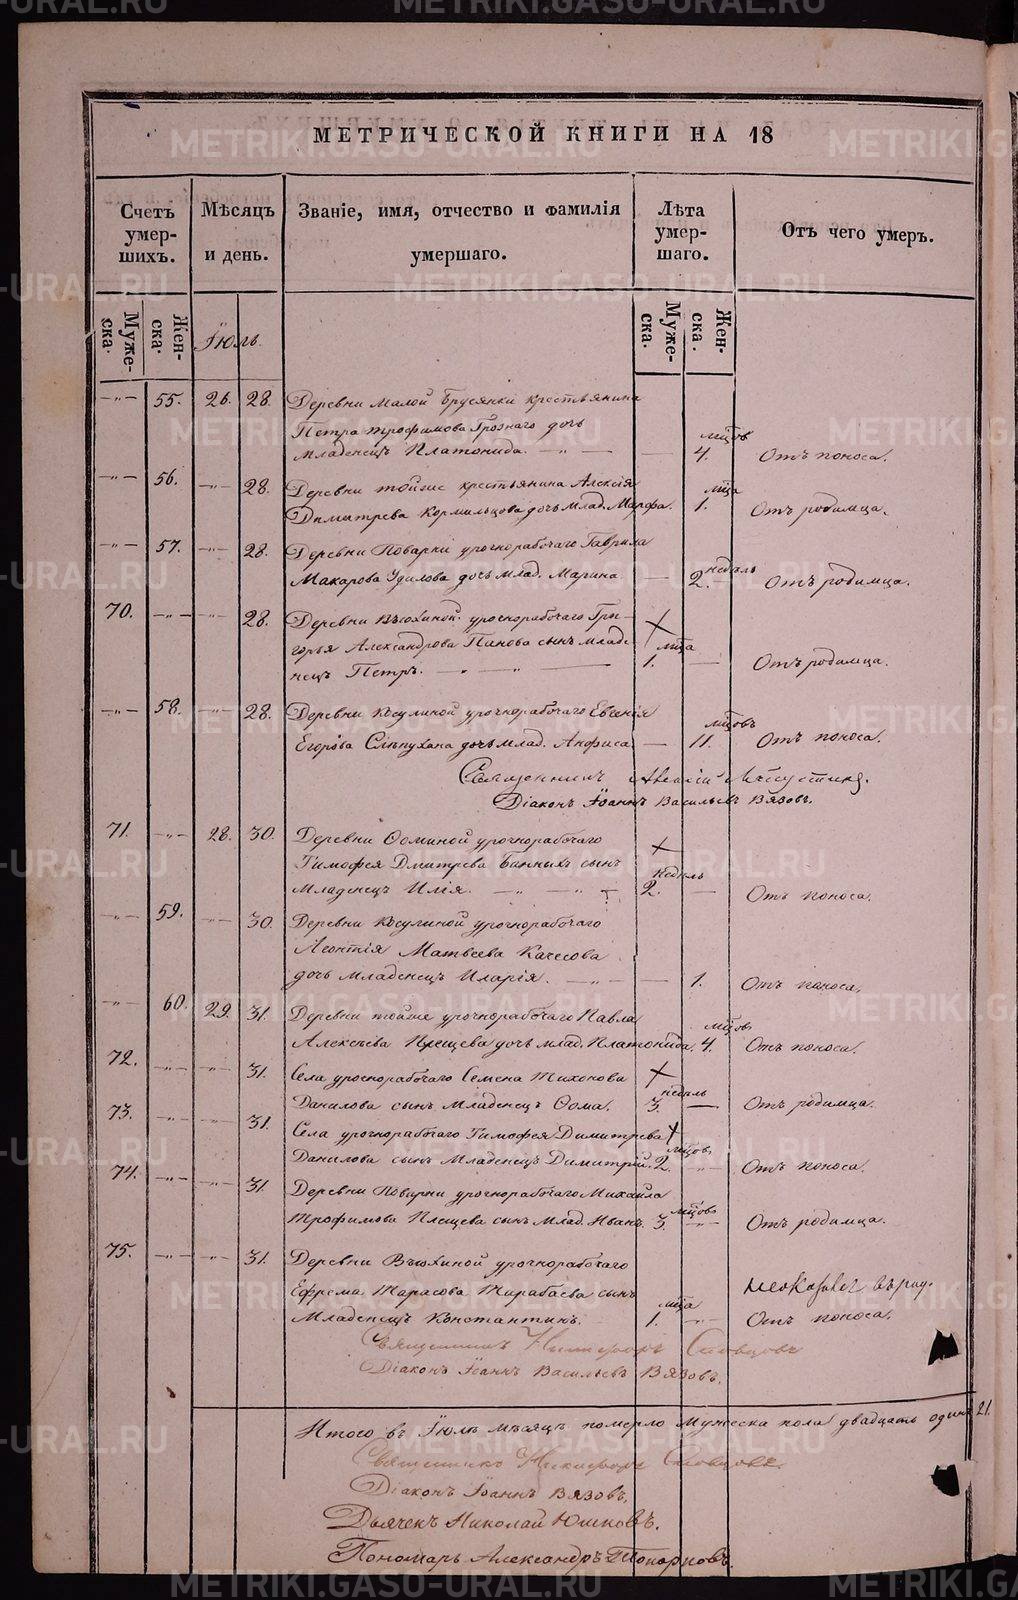 МЕТРИЧЕСКОЙ КНИГИ НА 18
Счетъ умер-шихъ. Мѣсяцъ и день. Званіе, имя, отчество и фамилія умершаго. Лѣта умер-шаго. Отъ чего умеръ.
Муже-ска. Жен-ска. Іюль. Муже-ска. Жен-ска.
55. 26. 28. Деревни Малой Брусянки крестьянина
Петра Трофимова Грознаго дочь
младенецъ Платонида. мцовъ 4. Отъ поноса.
56. 28. Деревни тойже крестьянина Алексія мца
Димитрева Кормильцова дочь млад. Марфа. 1. Отъ родимца.
57. 28. Деревни Поварни урочнорабочаго Гаврила
Макарова Удилова дочь млад. Марина недѣль 2. Отъ родимца.
70. 28. Деревни Вьюхиной урочнорабочаго Гри-
горья Александрова Панова сынъ младе-
нецъ Петръ. мца 1. Отъ родимца.
58. 28. Деревни Косулиной урочнорабочаго Евгенія
Егорова дочь млад. Анфиса мцовъ 11. Отъ поноса.
Священникъ
Діаконъ Іоаннъ Васильевъ Вязовъ.
71. 28. 30. Деревни Ѳоминой урочнорабочаго
Тимофея Дмитрева Банныхъ сынъ
Младенецъ Илія. недѣль 2. Отъ поноса.
59. 30. Деревни Косулиной урочнорабочаго
Леонтія Матвеева Качесова
дочь младенецъ Иларія. 1. Отъ поноса.
60. 29. 31. Деревни тойже урочнорабочаго Павла
Алексѣева дочь млад. Платонида. мцовъ 4. Отъ поноса.
72. 31. Села урочнорабочаго Семена Тихонова
Данилова сынъ младенецъ Ѳома. недѣль 3. Отъ родимца.
73. 31. Села урочнорабочаго Тимофея Димитрева
Данилова сынъ младенецъ Димитрій. мцовъ 2. Отъ поноса.
74. 31. Деревни Поварни урочнорабочаго Михаила
Трофимова Плещева сынъ млад. Иванъ. мцовъ 3. Отъ родимца.
75. 31. Деревни Вьюхиной урочнорабочаго
Ефрема Тарасова Тарабаева сынъ
младенецъ Константинъ. мца 1. Отъ поноса.
Священникъ Никифоръ
Діаконъ Іоаннъ Васильевъ Вязовъ.
Итого въ Іюлѣ мѣсяцѣ померло мужеска пола двадцать одинъ 21.
Священникъ Никифоръ
Діаконъ Іоаннъ Вязовъ.
Дьячекъ Николай Юшковъ.
Пономарь Александръ Топорковъ.
METRIKI.GASO-URAL.RU